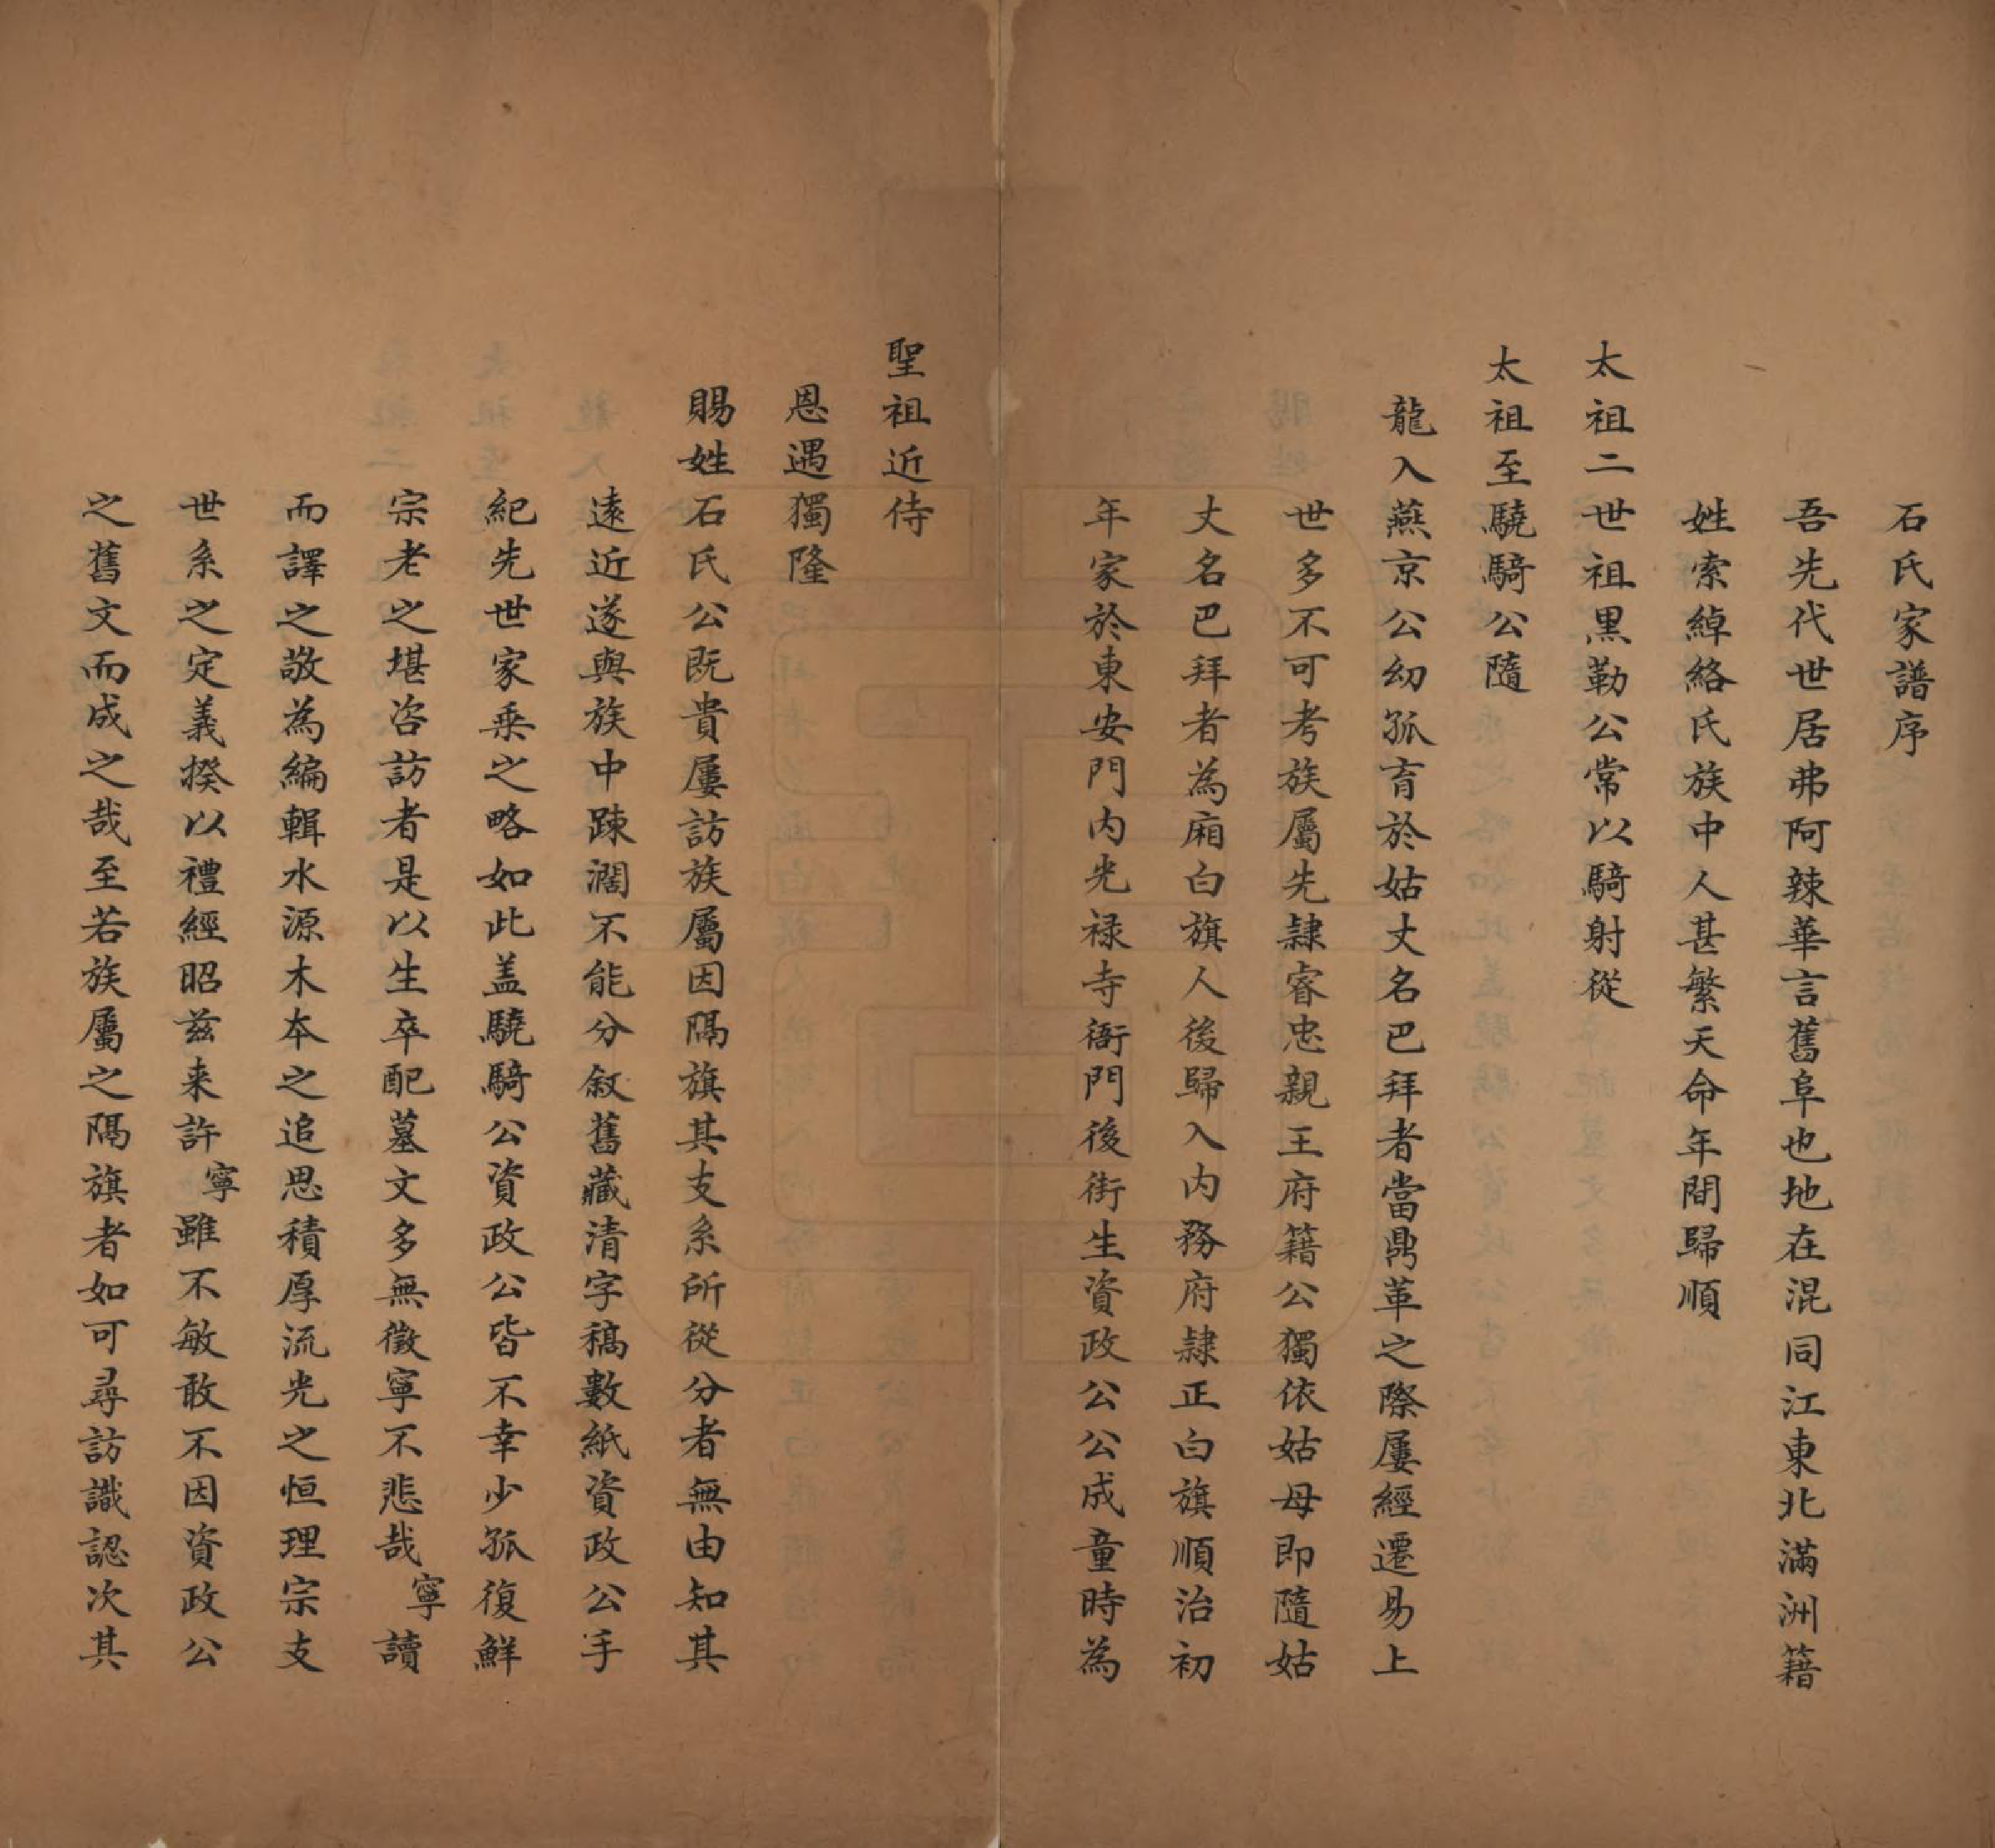 石氏家譜序
吾先代世居弗阿辣華言舊阜也地在混同江東北滿洲籍
姓索綽絡氏族中人甚繁天命年間歸順
太祖二世祖黑勒公常以騎射從
太祖至驍騎公隨
龍入燕京公幼孤育於姑丈名巴拜者當鼎革之際屢經遷易上
世多不可考族屬先隸睿忠親王府籍公獨依姑母即隨姑
丈名巴拜者為廂白旗人後歸入内務府隸正白旗順治初
年家於東安門内光禄寺衙門後街生資政公公成童時為
聖祖近侍
恩遇獨隆
賜姓石氏公既貴屢訪族屬因隔旗其支系所從分者無由知其
遠近遂與族中踈濶不能分敘舊藏清字稿數紙資政公手
紀先世家乘之略如此盖驍騎公資政公皆不幸少孤復鮮
宗老之堪咨訪者是以生卒配墓文多無徵寧不悲哉寧讀
而譯之敬為編輯水源木本之追思積厚流光之恒理宗支
世系之定義揆以禮經昭兹来許寧雖不敏敢不因資政公
之舊文而成之哉至若族屬之隔旗者如可尋訪識認次其